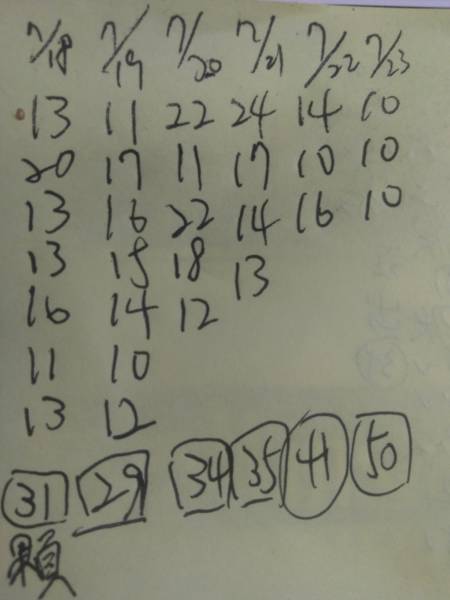 7/18 7/19 7/20 7/21 7/22 7/23
13 11 22 24 14 10
20 17 11 17 10 10
13 16 22 14 16 10
13 15 18 13
16 14 12
11 10
13 12
31 29 34 35 41 50
顆